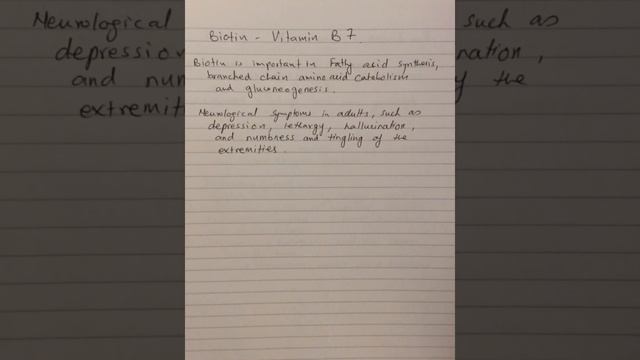 Biotin - Vitamin B7
Biotin is important in Fatty acid synthesis,
branched chain amino acid catabolism
and gluconeogenesis.
Neurological symptoms in adults, such as
depression, lethargy, hallucination,
and numbness and tingling of the
extremities.
Neurological
depression
and num
extremities
such as
nation,
the